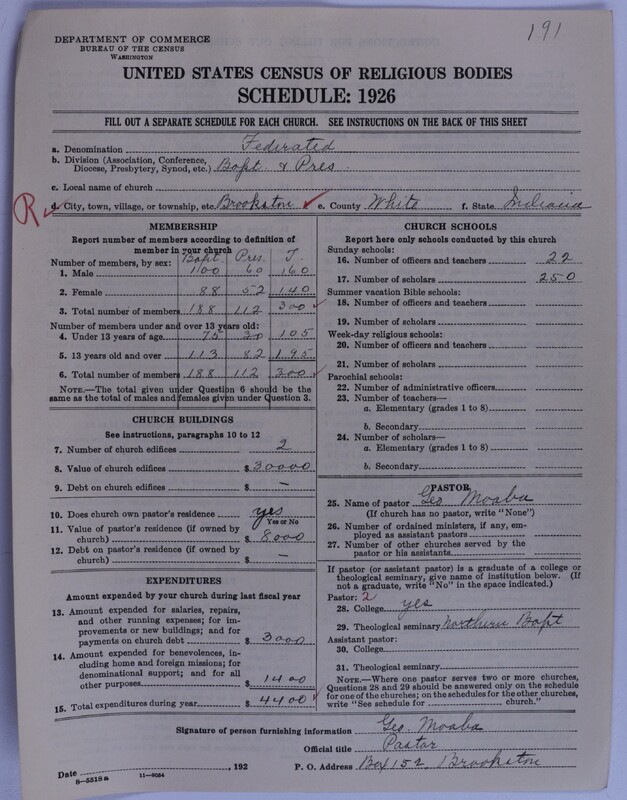 191
DEPARTMENT OF COMMERCE
BUREAU OF THE CENSUS
WASHINGTON
UNITED STATES CENSUS OF RELIGIOUS BODIES
SCHEDULE: 1926
FILL OUT A SEPARATE SCHEDULE FOR EACH CHURCH. SEE INSTRUCTIONS ON THE BACK OF THIS SHEET
a. Denomination Federated
b. Division (Association, Conference,
Diocese, Presbytery, Synod, etc.) Bapt & Pres.
c. Local name of church
R d. City, town, village, or township, etc. Brookston e. County White f. State Indiana
MEMBERSHIP
Report number of members according to definition of
member in your church
Number of members, by sex: Bapt Pres. T.
1. Male 100 60 160
2. Female 88 52 140
3. Total number of members 188 112 300
Number of members under and over 13 years old:
4. Under 13 years of age 75 30 105
5. 13 years old and over 113 82 195
6. Total number of members 188 112 300
NOTE.—The total given under Question 6 should be the
same as the total of males and females given under Question 3.
CHURCH BUILDINGS
See instructions, paragraphs 10 to 12
7. Number of church edifices 2
8. Value of church edifices $30000
9. Debt on church edifices $ –
10. Does church own pastor's residence yes
Yes or No
11. Value of pastor's residence (if owned by
church) $ 8000
12. Debt on pastor's residence (if owned by
church) $ –
EXPENDITURES
Amount expended by your church during last fiscal year
13. Amount expended for salaries, repairs,
and other running expenses; for im-
provements or new buildings; and for
payments on church debt $ 3000
14. Amount expended for benevolences, in-
cluding home and foreign missions; for
denominational support; and for all
other purposes $ 1400
15. Total expenditures during year $ 4400
CHURCH SCHOOLS
Report here only schools conducted by this church
Sunday schools:
16. Number of officers and teachers 22
17. Number of scholars 250
Summer vacation Bible schools:
18. Number of officers and teachers
19. Number of scholars
Week-day religious schools:
20. Number of officers and teachers
21. Number of scholars
Parochial schools:
22. Number of administrative officers
23. Number of teachers—
a. Elementary (grades 1 to 8)
b. Secondary
24. Number of scholars—
a. Elementary (grades 1 to 8)
b. Secondary
PASTOR
25. Name of pastor Geo Moaba
(If church has no pastor, write "None")
26. Number of ordained ministers, if any, em-
ployed as assistant pastors
27. Number of other churches served by the
pastor or his assistants
If pastor (or assistant pastor) is a graduate of a college or
theological seminary, give name of institution below. (If
not a graduate, write "No" in the space indicated.)
Pastor: 2
28. College yes
29. Theological seminary Northern Bapt
Assistant pastor:
30. College
31. Theological seminary
NOTE.—Where one pastor serves two or more churches,
Questions 28 and 29 should be answered only on the schedule
for one of the churches; on the schedules for the other churches,
write "See schedule for ........ church."
Signature of person furnishing information Geo. Moaba
Official title Pastor
Date , 192 P. O. Address Box 152, Brookston
8—5518 a 11—9054